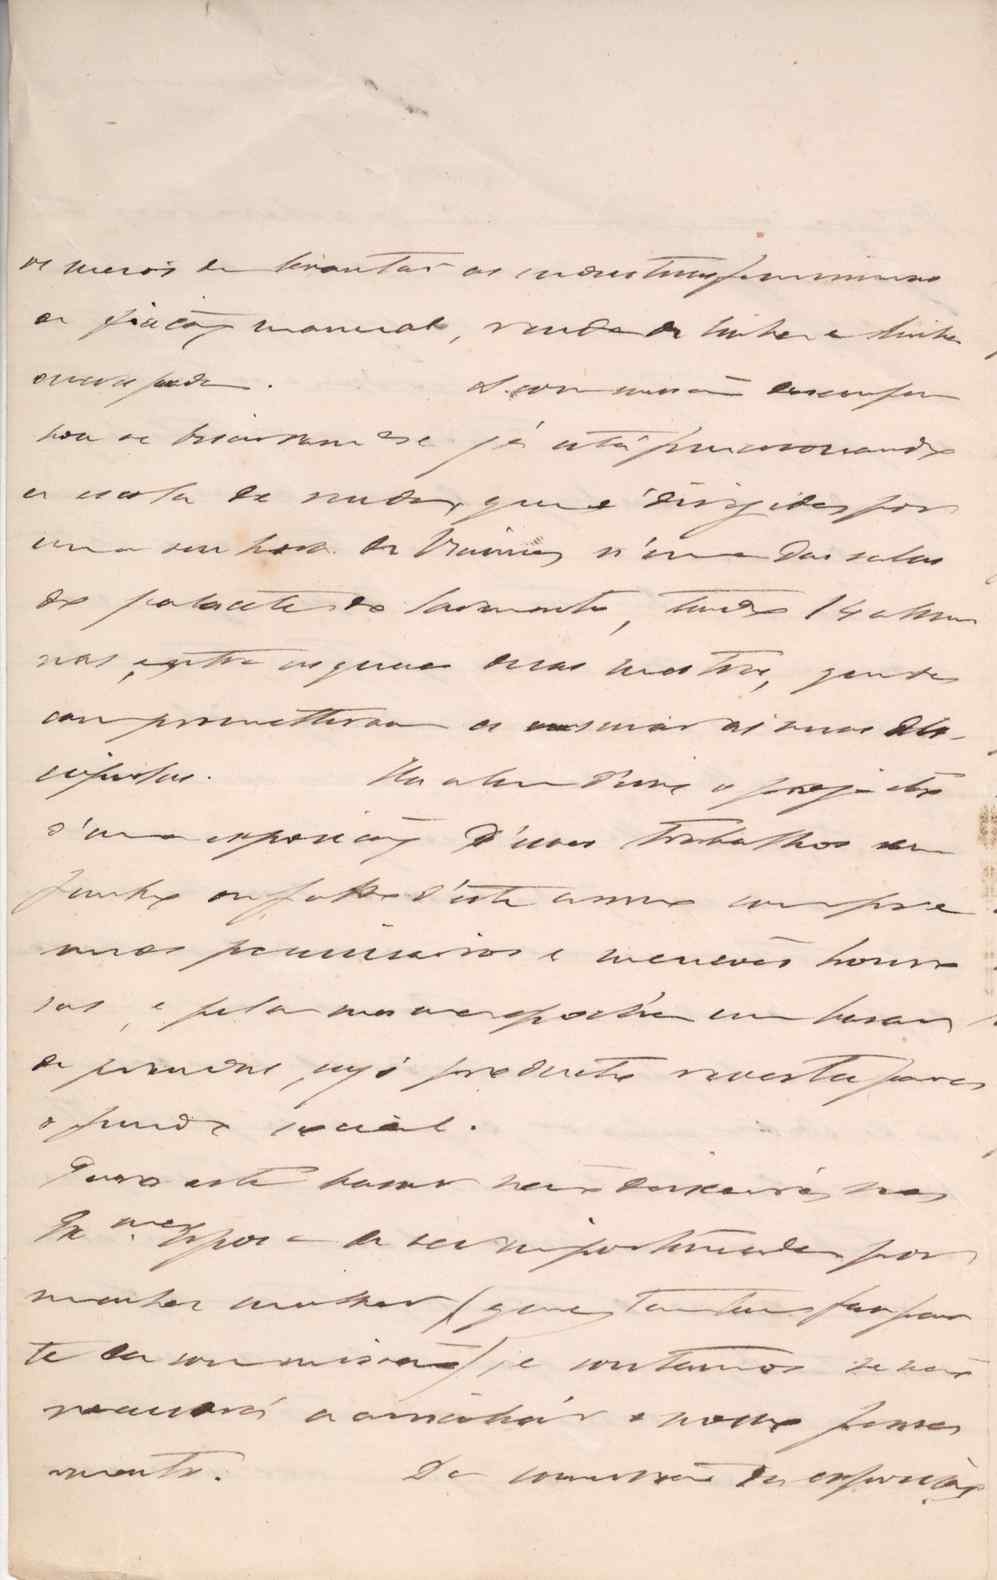 os meios de levantar as industrias femininas
da fiação manual, renda de bilros e linha
encrespada. A commissão desempe
nhou-se briosamente e já está funccionando
a escola de rendas, que é dirigida por
uma senhora de Vianna, n'uma das salas
do palacete do , tendo 14 alum
nas, entre as quaes duas mestras, que se
comprometteram a ensinar as suas dis-
cipulas. Ha alem d'isso o projecto
d'uma exposição d'esses trabalhos em
junho ou julho d'este anno com pre
mios pecuniarios e menções honro
sas, e pela mesma epocha um bazar
de prendas, cujo producto reverta para
o fundo social.
Para este bazar não deixará sua
Ex.ma Esposa de ser importunada por
minha mulher (que tambem faz par
te da commissão) e contamos se não
recusará a auxiliar o nosso pensa
mento. Da commissão da exposição